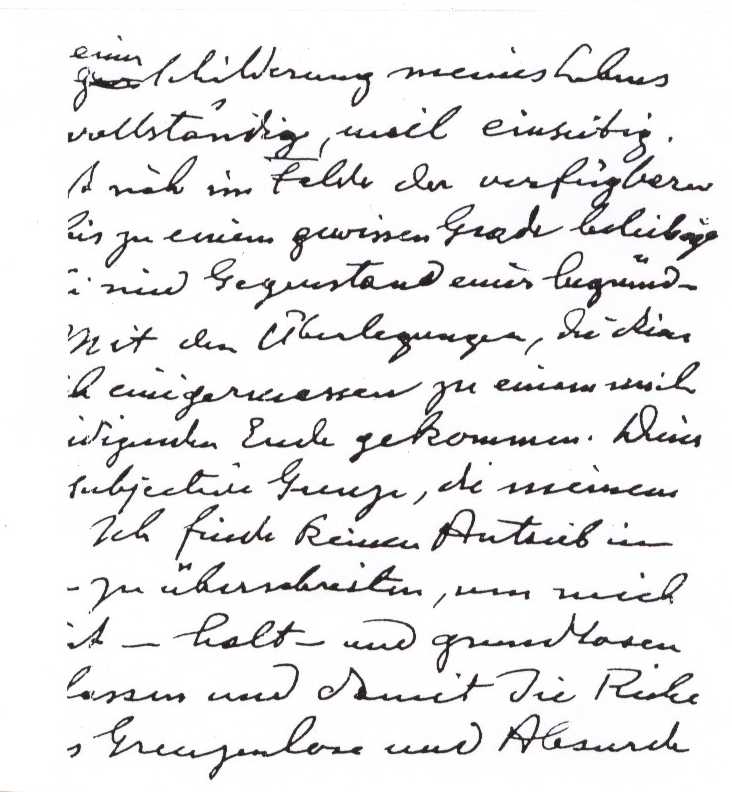 einer
Schilderung meines Lebens
vollständig, weil einseitig.
nich im Felde der verfügbaren
bis zu einem gewissen Grade beliebige
nie Gegenstand einer begründ-
Mit den Überlegungen, die
h einigermassen zu einem mich
digenden Ende gekommen. Diese
subjective Grenze, die meinem
Ich finde keinen Antrieb in
- zu überschreiten, um mich
it – halt- und grundlosen
lassen und damit die Reihe
s Grenzenlose und Absurde